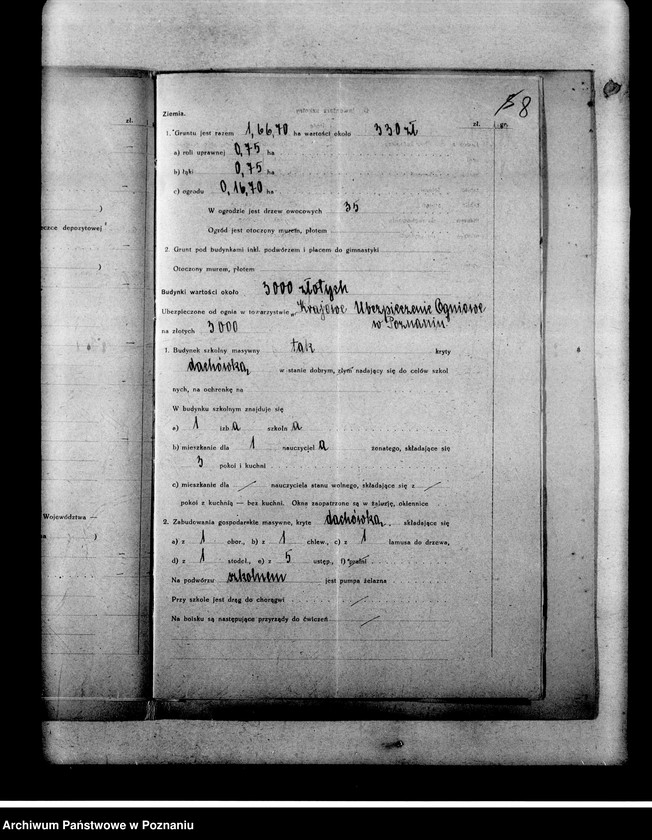 8
Ziemia.
zł.
zł.
1. Gruntu jest razem 1,66,70 ha wartości około 330 zł
a) roli uprawnej 0,75 ha
b) łąki 0,75 ha
c) ogrodu 0,16,70 ha
W ogrodzie jest drzew owocowych 35
Ogród jest otoczony murem, płotem
eczce depozytowej
2. Grunt pod budynkami inkl. podwórzem i placem do gimnastyki
Otoczony murem, płotem
)
)
Budynki wartości około 3000 złotych
Ubezpieczone od ognia w towarzystwie „Krajowe Ubezpieczenie Ogniowe
w Poznaniu"
na złotych 3000
1. Budynek szkolny masywny tak kryty
dachówką, w stanie dobrym, złym nadający się do celów szkol
nych, na ochronkę na
W budynku szkolnym znajduje się
a) 1 izb a szkoln a
b) mieszkanie dla 1 nauczyciel a żonatego, składające się
3 pokoi i kuchni
c) mieszkanie dla / nauczyciela stanu wolnego, składające się z /
pokoi z kuchnią — bez kuchni. Okna zaopatrzone są w żaluzje, okiennice
Województwa —
)
2. Zabudowania gospodarskie masywne, kryte dachówką, składające się
a) z 1 obor., b) z 1 chlew., c) z 1 lamusa do drzewa,
d) z 1 stodoł., e) z 5 ustęp., f) pralni
Na podwórzu szkolnem jest pumpa żelazna
Przy szkole jest drąg do chorągwi /
Na boisku są następujące przyrządy do ćwiczeń /
Archiwum Państwowe w Poznaniu